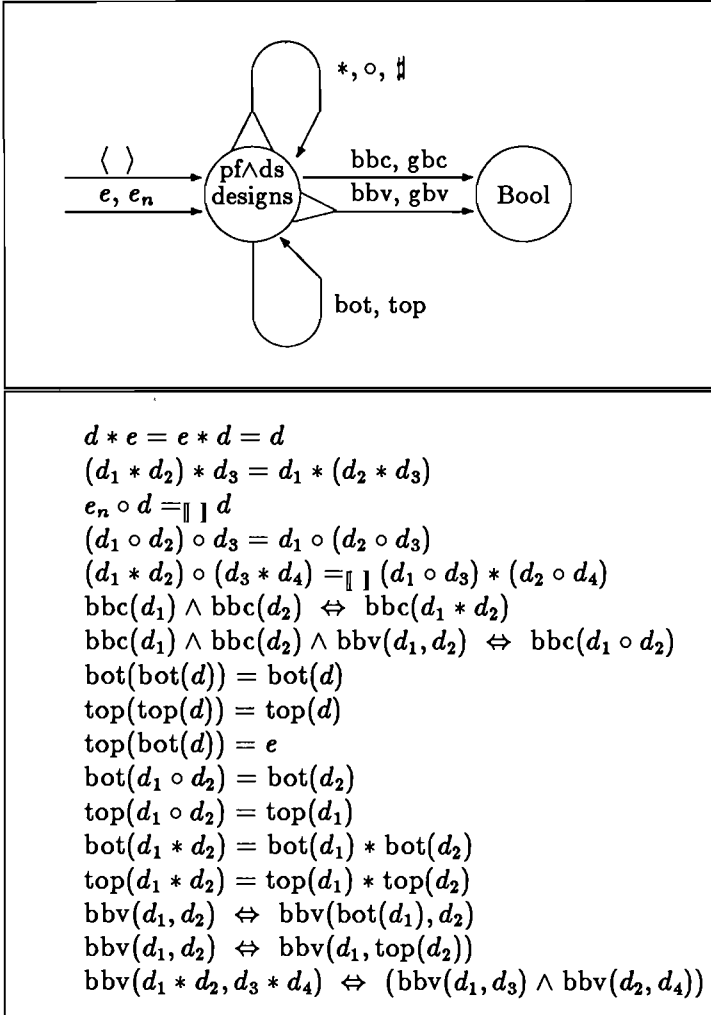 *, ∘, ∦
⟨ ⟩
e, eₙ
pf∧ds
designs
bbc, gbc
bbv, gbv
Bool
bot, top
d * e = e * d = d
(d₁ * d₂) * d₃ = d₁ * (d₂ * d₃)
eₙ ∘ d =⟦ ⟧ d
(d₁ ∘ d₂) ∘ d₃ = d₁ ∘ (d₂ ∘ d₃)
(d₁ * d₂) ∘ (d₃ * d₄) =⟦ ⟧ (d₁ ∘ d₃) * (d₂ ∘ d₄)
bbc(d₁) ∧ bbc(d₂) ⇔ bbc(d₁ * d₂)
bbc(d₁) ∧ bbc(d₂) ∧ bbv(d₁, d₂) ⇔ bbc(d₁ ∘ d₂)
bot(bot(d)) = bot(d)
top(top(d)) = top(d)
top(bot(d)) = e
bot(d₁ ∘ d₂) = bot(d₂)
top(d₁ ∘ d₂) = top(d₁)
bot(d₁ * d₂) = bot(d₁) * bot(d₂)
top(d₁ * d₂) = top(d₁) * top(d₂)
bbv(d₁, d₂) ⇔ bbv(bot(d₁), d₂)
bbv(d₁, d₂) ⇔ bbv(d₁, top(d₂))
bbv(d₁ * d₂, d₃ * d₄) ⇔ (bbv(d₁, d₃) ∧ bbv(d₂, d₄))